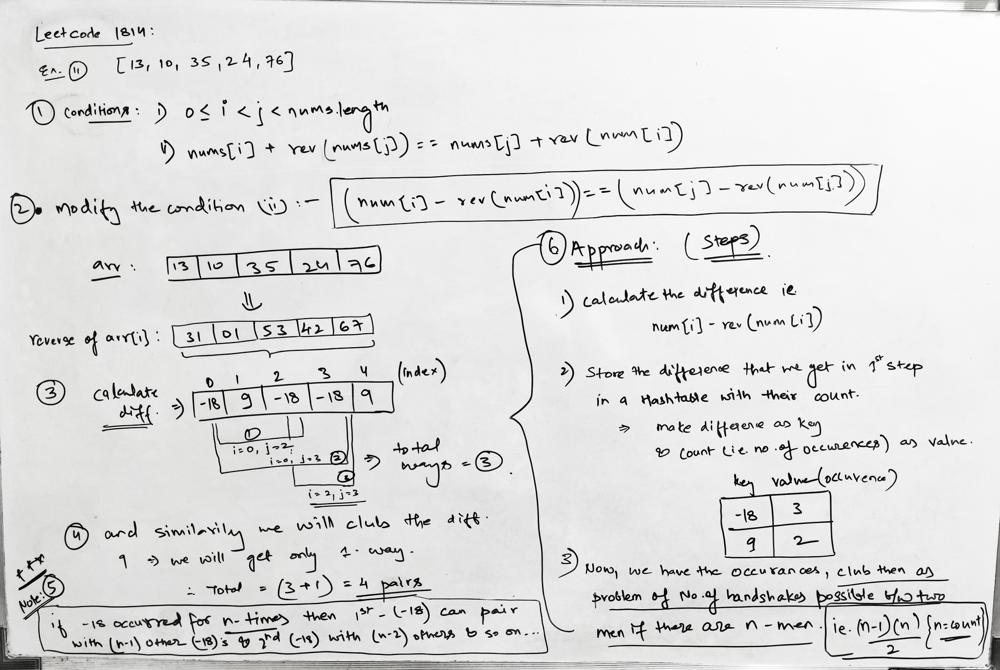 Leetcode 1814:
Ex. (11) [13, 10, 35, 24, 76]
① conditions: i) 0 ≤ i < j < nums.length
ii) nums[i] + rev(nums[j]) == nums[j] + rev(num[i])
②. modify the condition (ii) :- (num[i] - rev(num[i])) == (num[j] - rev(num[j]))
arr : 13 | 10 | 35 | 24 | 76
⇓
reverse of arr[i] : 31 | 01 | 53 | 42 | 67
0 1 2 3 4 (index)
③ calculate diff. ⇒ -18 | 9 | -18 | -18 | 9
①
i=0, j=2
i=0, j=3 ②
③
i=2, j=3
⇒ total ways = ③.
④ and similarily we will clubs the diff.
9 ⇒ we will get only 1. way.
∴ Total = (3+1) = 4 pairs
*** Note: ⑤
if -18 occurred for n-times then 1st - (-18) can pair
with (n-1) other (-18)'s & 2nd (-18) with (n-2) others & so on...
⑥ Approach: (Steps).
1) Calculate the difference ie
num[i] - rev(num[i])
2) Store the difference that we get in 1st step
in a Hashtable with their count.
⇒ make difference as key
& count (i.e. no. of occurences) as value.
key value (occurence)
-18 | 3
9 | 2
3) Now, we have the occurances, club then as
problem of No. of handshakes possible b/w two
men if there are n-men. ie. (n-1)(n)/2 {n=count}